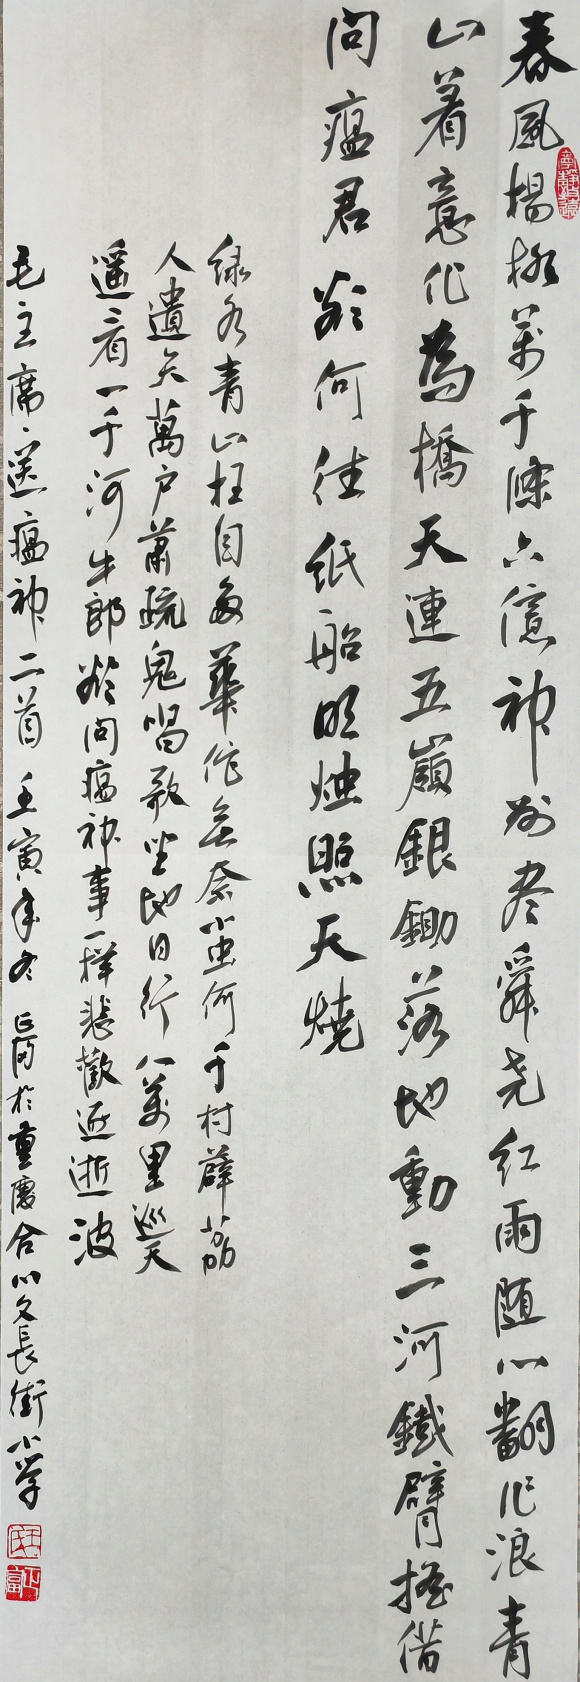 春風楊柳萬千條六億神州尽舜尧紅雨随心翻作浪青
山着意化為橋天連五嶺銀鋤落地動三河鐵臂搖借
問瘟君欲何往紙船明燭照天燒
绿水青山枉自多華佗無奈小虫何千村薜荔
人遺矢萬户蕭疏鬼唱歌坐地日行八萬里巡天
遥看一千河牛郎欲問瘟神事一樣悲歡逐逝波
毛主席送瘟神二首壬寅年冬正富於重慶合川文長街小学